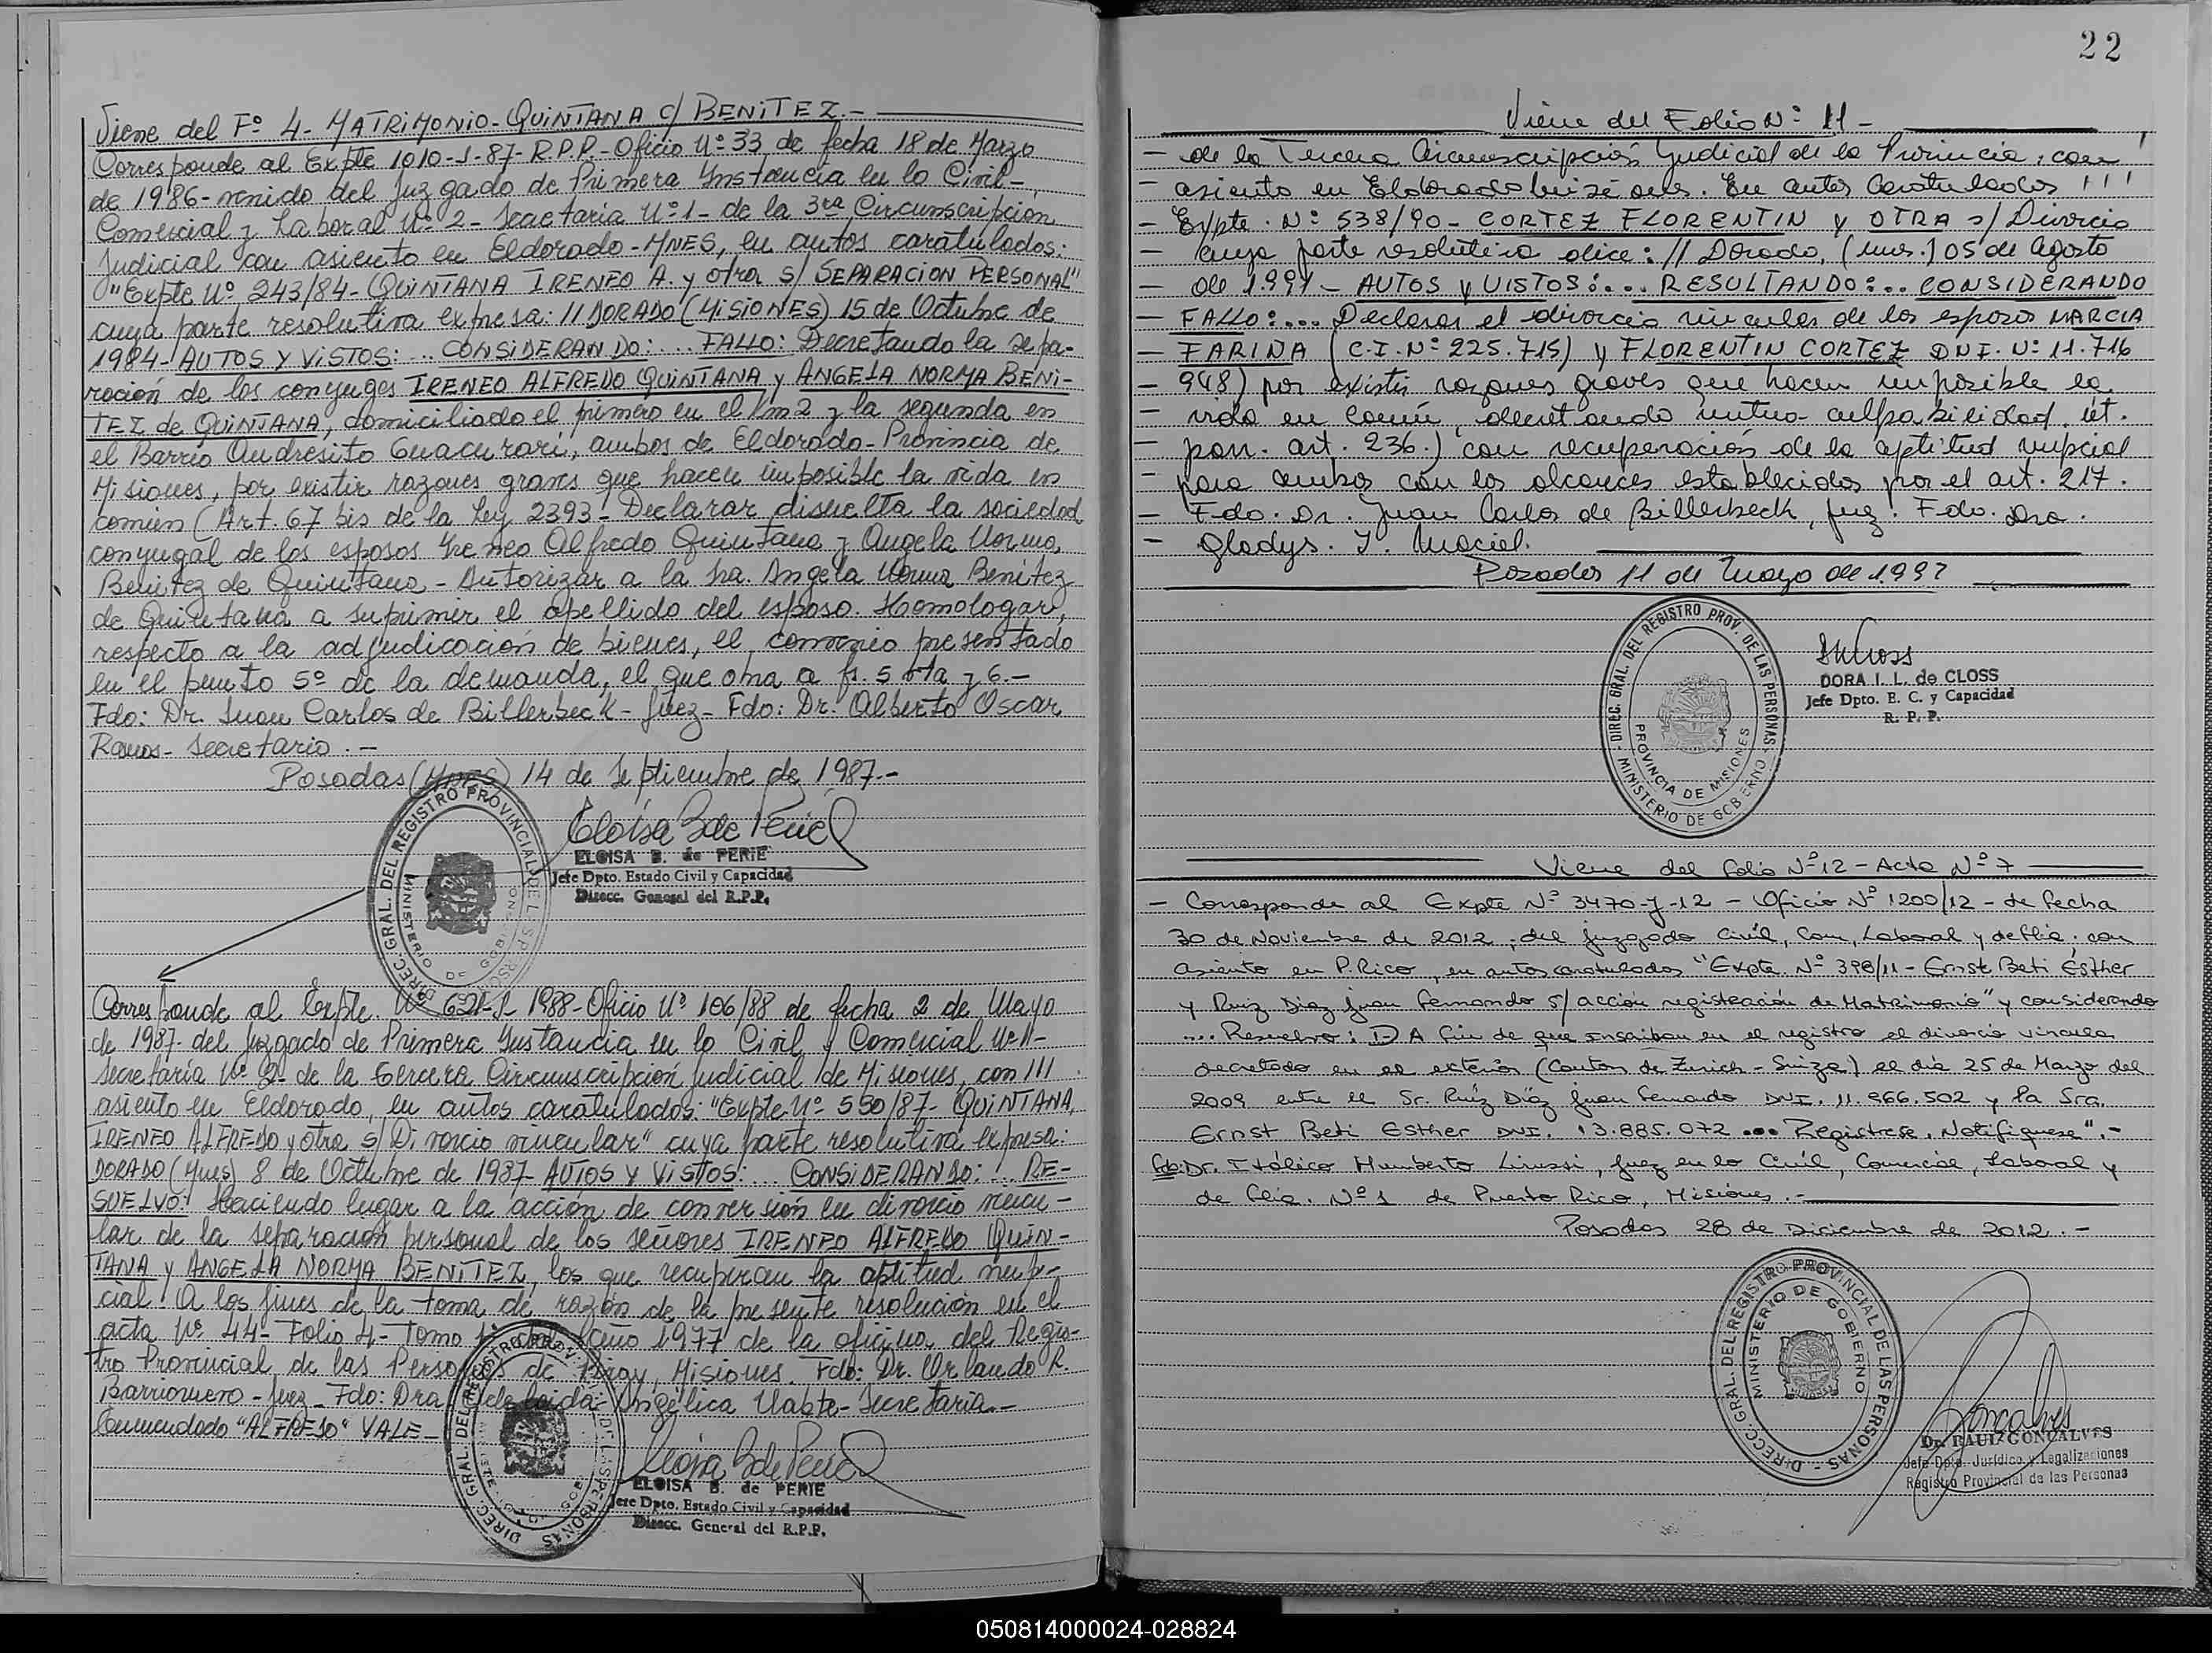 Viene del Fº 4- MATRIMONIO- QUINTANA c/ BENITEZ.-
Corresponde al Expte 1010-J-87- R.P.P.- Oficio Nº 33 de fecha 18 de Marzo
de 1986- venido del Juzgado de Primera Instancia en lo Civil-
Comercial y Laboral Nº 2- Secretaria Nº 1- de la 3ra Circunscripción
Judicial con asiento en Eldorado- MNES, en autos caratulados:
"Expte Nº 243/84- QUINTANA IRENEO A. y otra s/ SEPARACION PERSONAL"
cuya parte resolutiva expresa: //DORADO (MISIONES) 15 de Octubre de
1984- AUTOS Y VISTOS: ... CONSIDERANDO: ... FALLO: Decretando la sepa-
ración de los conyuges IRENEO ALFREDO QUINTANA y ANGELA NORMA BENI-
TEZ de QUINTANA, domiciliado el primero en el Km 2 y la segunda en
el Barrio Andresito Guacurarí, ambos de Eldorado- Provincia de
Misiones, por existir razones graves que hacen imposible la vida en
común (Art. 67 bis de la Ley 2393- Declarar disuelta la sociedad
conyugal de los esposos Ireneo Alfredo Quintana y Angela Norma
Benitez de Quintana- Autorizar a la Sra. Angela Norma Benitez
de Quintana a suprimir el apellido del esposo. Homologar,
respecto a la adjudicación de bienes, el convenio presentado
en el punto 5º de la demanda, el que obra a fs. 5 vta y 6.-
Fdo: Dr. Juan Carlos de Billerbeck- Juez- Fdo: Dr. Alberto Oscar
Ramos- Secretario.-
Posadas (Mnes) 14 de Septiembre de 1987.-
DIREC. GRAL. DEL REGISTRO PROVINCIAL DE LAS PERSONAS
MINISTERIO DE GOBIERNO
Eloisa B de Perié
ELOISA B. de PERIE
Jefe Dpto. Estado Civil y Capacidad
Direcc. General del R.P.P.
Corresponde al Expte. Nº 621-J- 1988- Oficio Nº 106/88 de fecha 2 de Mayo
de 1987- del Juzgado de Primera Instancia en lo Civil y Comercial Nº 1-
Secretaría Nº 2- de la tercera Circunscripción Judicial de Misiones, con ///
asiento en Eldorado, en autos caratulados: "Expte Nº 550/87- QUINTANA,
IRENEO ALFREDO y otra s/ Divorcio vincular" cuya parte resolutiva expresa:
DORADO (Mnes) 8 de Octubre de 1987- AUTOS Y VISTOS: ... CONSIDERANDO: ... RE-
SUELVO: Haciendo lugar a la acción de conversión en divorcio vincu-
lar de la separación personal de los señores IRENEO ALFREDO QUIN-
TANA y ANGELA NORMA BENITEZ, los que recuperan la aptitud nup-
cial. A los fines de la toma de razón de la presente resolución en el
acta Nº 44- Folio 4- Tomo año 1977 de la oficina del Regis-
tro Provincial de las Personas de Piray, Misiones. Fdo: Dr. Orlando R.
Barrionuevo- Juez- Fdo: Dra Angélica Secretaria.-
Enmendado "ALFREDO" VALE-
DIREC. GRAL. DEL REGISTRO PROV. DE LAS PERSONAS
Eloisa B de Perié
ELOISA B. de PERIE
Jefe Dpto. Estado Civil y Capacidad
Direcc. General del R.P.P.
22
Viene del Folio Nº 11-
- de la Tercera Circunscripción Judicial de la Provincia, con
- asiento en Eldorado Misiones. En autos Caratulados ///
- Expte. Nº 538/90- CORTEZ FLORENTIN y OTRA s/ Divorcio
- cuya parte resolutiva dice: // Dorado, (mns.) 05 de Agosto
- de 1.991- AUTOS y VISTOS:... RESULTANDO:... CONSIDERANDO
- FALLO:... Declarar el divorcio vincular de los esposos MARCIA
- FARIÑA (C.I. Nº 225.715) y FLORENTIN CORTEZ DNI. Nº 11.716
- 948) por existir razones graves que hacen imposible la
- vida en común, decretando mutua culpabilidad, út.
- parr. art. 236.) con recuperación de la aptitud nupcial
- para ambos con los alcances establecidos por el art. 217.
- Fdo. Dr. Juan Carlos de Billerbeck, Juez. Fdo. Dra.
- Gladys. I. Maciel.
Posadas 11 de Mayo de 1.992
DIREC. GRAL. DEL REGISTRO PROV. DE LAS PERSONAS
MINISTERIO DE GOBIERNO
PROVINCIA DE MISIONES
DORA I. L. de CLOSS
Jefe Dpto. E. C. y Capacidad
R. P. P.
Viene del folio Nº 12- Acta Nº 7
- Corresponde al Expte Nº 3470-J-12 - Oficio Nº 1200/12 - de fecha
30 de Noviembre de 2012, del Juzgado Civil, Com, Laboral y de flia, con
asiento en P. Rico, en autos caratulados "Expte. Nº 398/11 - Ernst Beti Esther
y Ruiz Diaz Juan Fernando s/ acción registración de Matrimonio" y considerando
... Resuelvo: I) A fin de que inscriban en el registro el divorcio vincular
decretado en el exterior (Canton de Zurich - Suiza) el día 25 de Marzo del
2009 entre el Sr. Ruíz Díaz Juan Fernando DNI. 11.966.502 y la Sra.
Ernst Beti Esther DNI. 13.885.072 ... Registrese, Notifiquese".-
Fdo: Dr. Itálico Humberto Juez en lo Civil, Comercial, Laboral y
de flia. Nº 1 de Puerto Rico, Misiones.-
Posadas 28 de Diciembre de 2012.-
DIRECC. GRAL. DEL REGISTRO PROVINCIAL DE LAS PERSONAS
MINISTERIO DE GOBIERNO
Goncalves
Dr. RAUL GONCALVES
Jefe Dpto. Jurídico y Legalizaciones
Registro Provincial de las Personas
050814000024-028824